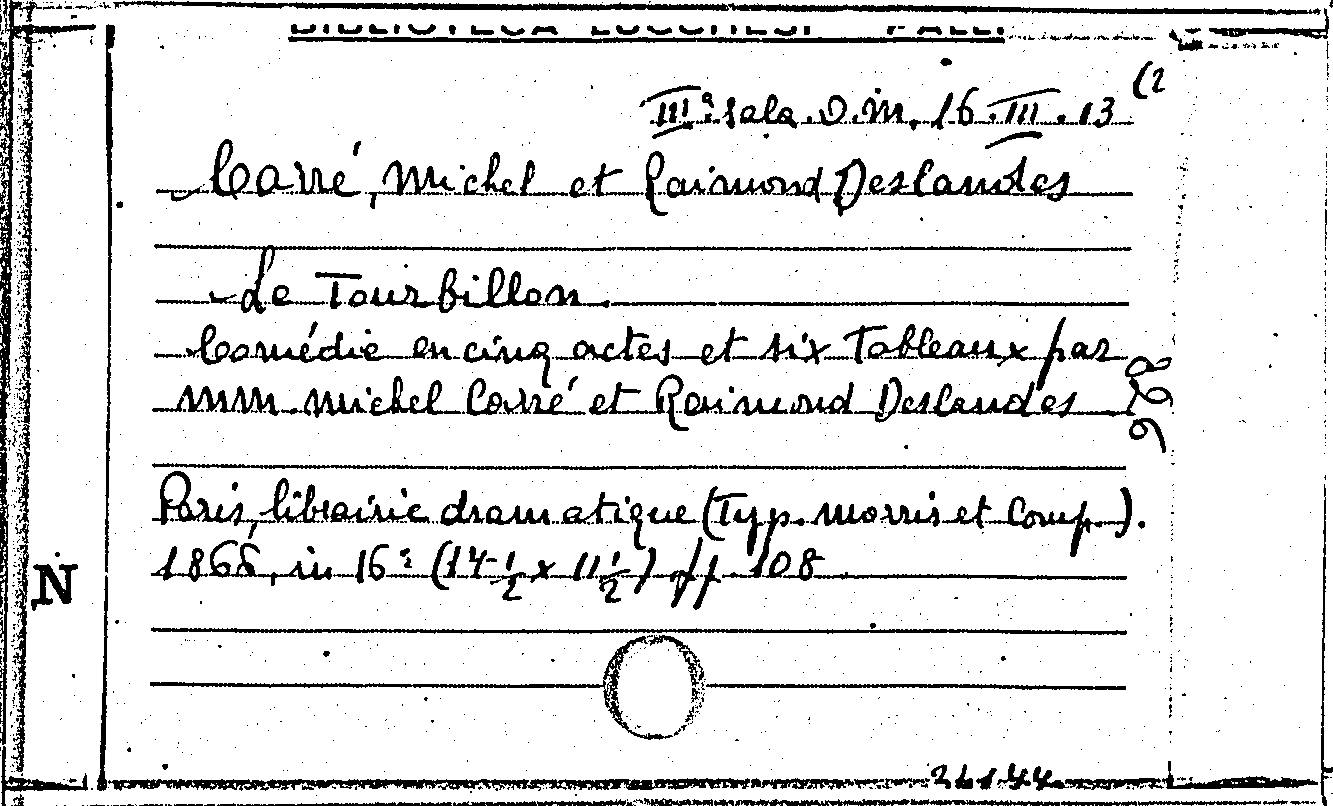 BIBLIOTECA LUCCHESI - PALLI
IIIª sala. O. M. 16. III. 13 (2
Carré, Michel et Raimond Deslandes
Le Tourbillon.
Comédie en cinq actes et six Tableaux par
MM. Michel Carré et Raimond Deslandes
Paris, librairie dramatique (Typ. Morris et Comp.).
1866, in 16º (14 1/2 x 11 1/2) pp. 108
N